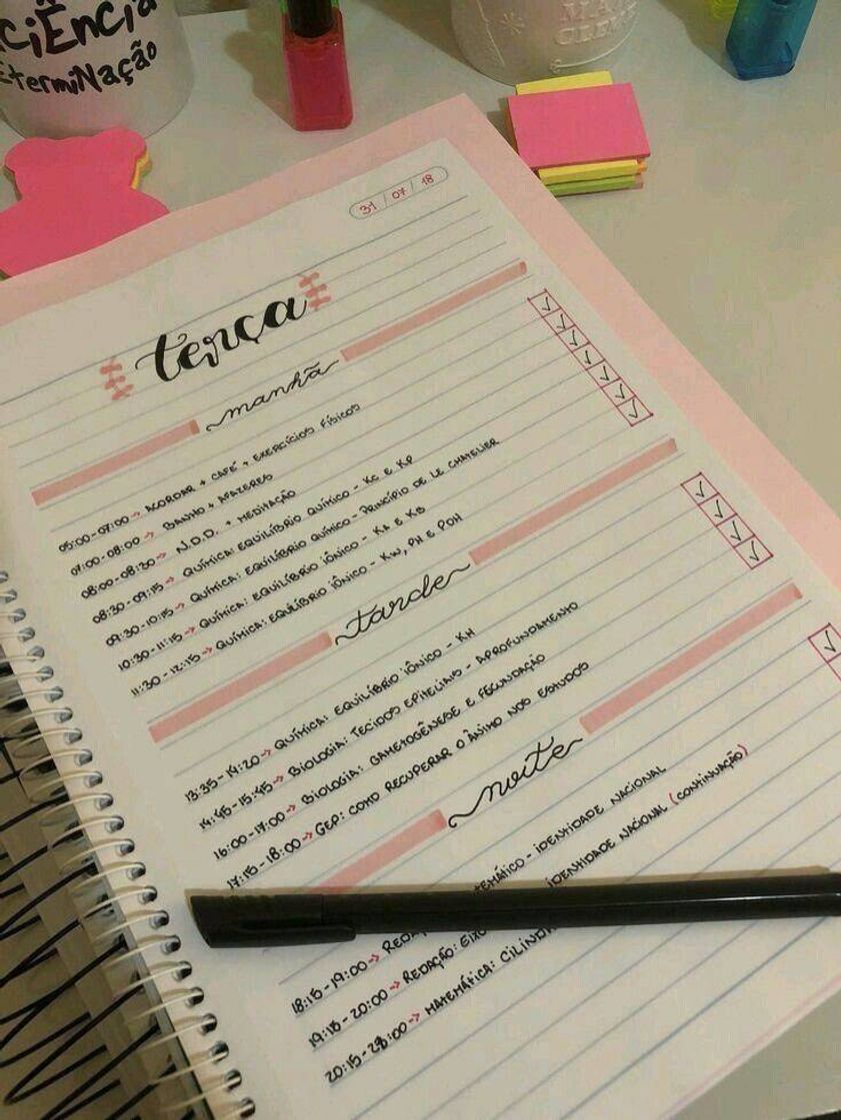 CIÊNCIA
DETERMINAÇÃO
31/07/18
terça
manhã
05:00-07:00 → ACORDAR + CAFÉ + EXERCÍCIOS FÍSICOS
07:00-08:00 → BANHO + AFAZERES
08:00-08:30 → N.D.D. + MEDITAÇÃO
08:30-09:15 → QUÍMICA: EQUILÍBRIO QUÍMICO - KC E KP
09:30-10:15 → QUÍMICA: EQUILÍBRIO QUÍMICO - PRINCÍPIO DE LE CHATELIER
10:30-11:15 → QUÍMICA: EQUILÍBRIO IÔNICO - KA E KB
11:30-12:15 → QUÍMICA: EQUILÍBRIO IÔNICO - KW, PH E POH
tarde
13:35-14:20 → QUÍMICA: EQUILÍBRIO IÔNICO - KH
14:45-15:45 → BIOLOGIA: TECIDOS EPITELIAIS - APROFUNDAMENTO
16:00-17:00 → BIOLOGIA: GAMETOGÊNESE E FECUNDAÇÃO
17:15-18:00 → GEP: COMO RECUPERAR O ÂNIMO NOS ESTUDOS
noite
18:15-19:00 → REDA TEMÁTICO - IDENTIDADE NACIONAL
19:15-20:00 → REDAÇÃO: EIXO IDENTIDADE NACIONAL (CONTINUAÇÃO)
20:15- → MATEMÁTICA: CILIND